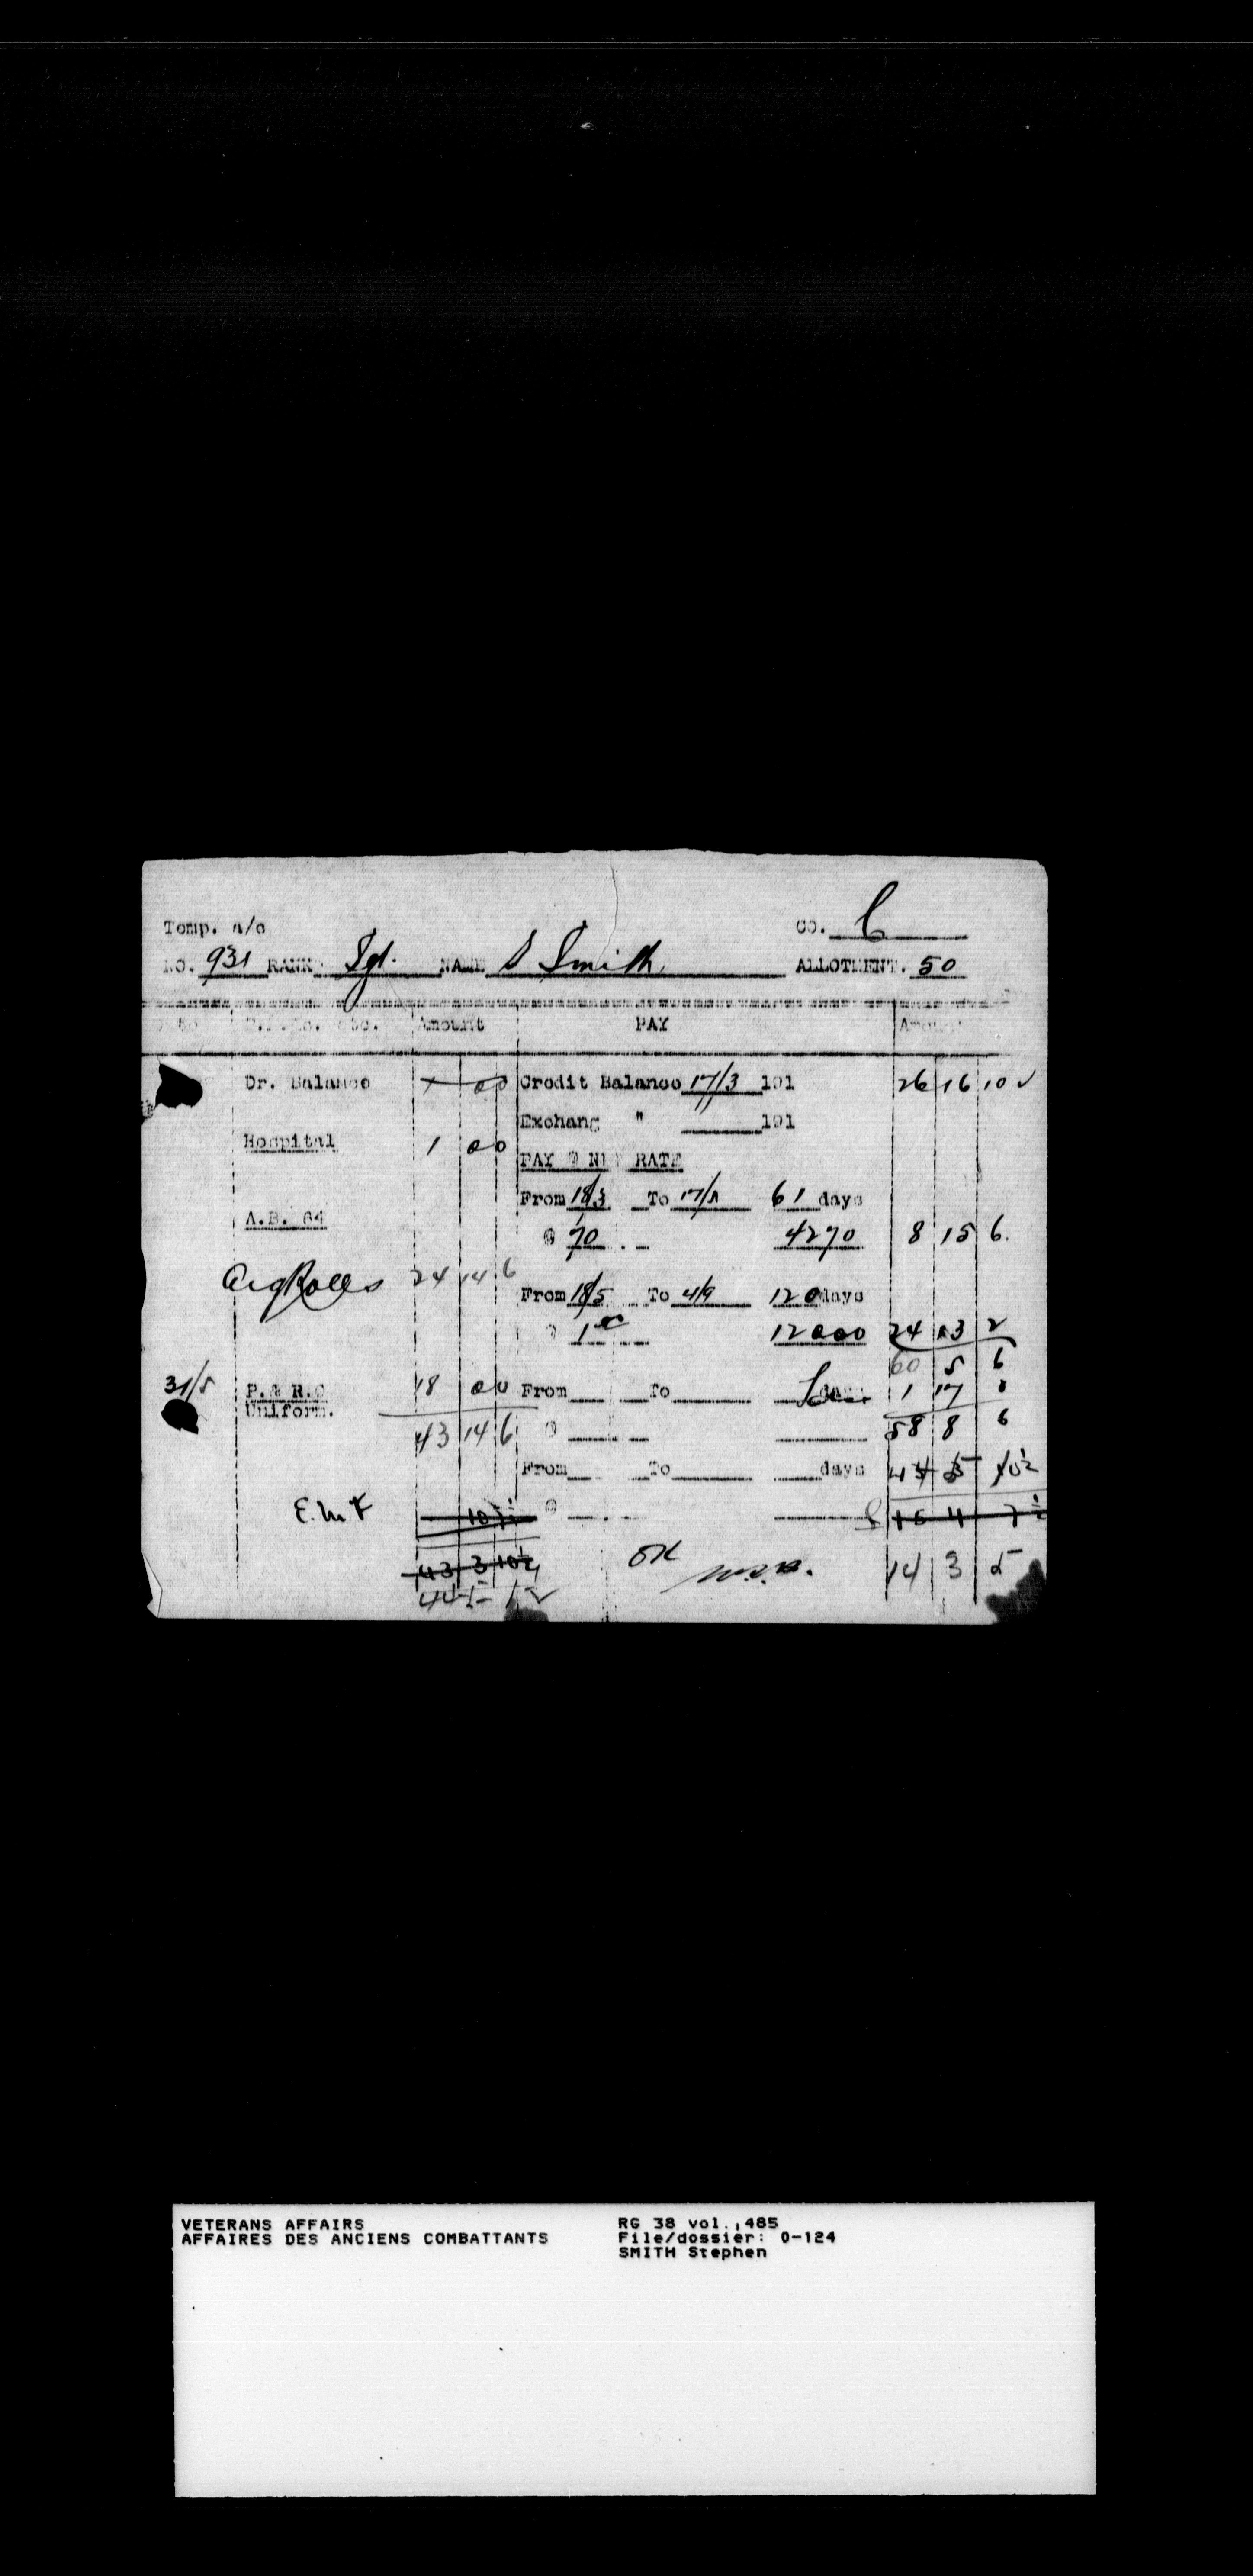 Temp. a/c CO. C
NO. 931 RANK Sgt. NAME S Smith ALLOTMENT. 50
etc. Amount PAY
Dr. Balance 00 Credit Balance 17/3 191 26 16 10
Exchang " 191
Hospital 1 00
PAY @ N RATE
From 18/3 To 17/5 61 days
A.B. 64
@ 70 4270 8 15 6.
24 14 6
From 18/5 To 4/9 120 days
@ 1 00 12000 24 13 2
60 5 6
31/5 P. & R.O 18 00 From To days 1 17 0
Uniform.
43 14 6 @ 58 8 6
From To days
E.M.F @
43 3 10½ OK 14 3 5
VETERANS AFFAIRS RG 38 vol.,485
AFFAIRES DES ANCIENS COMBATTANTS File/dossier: 0-124
SMITH Stephen